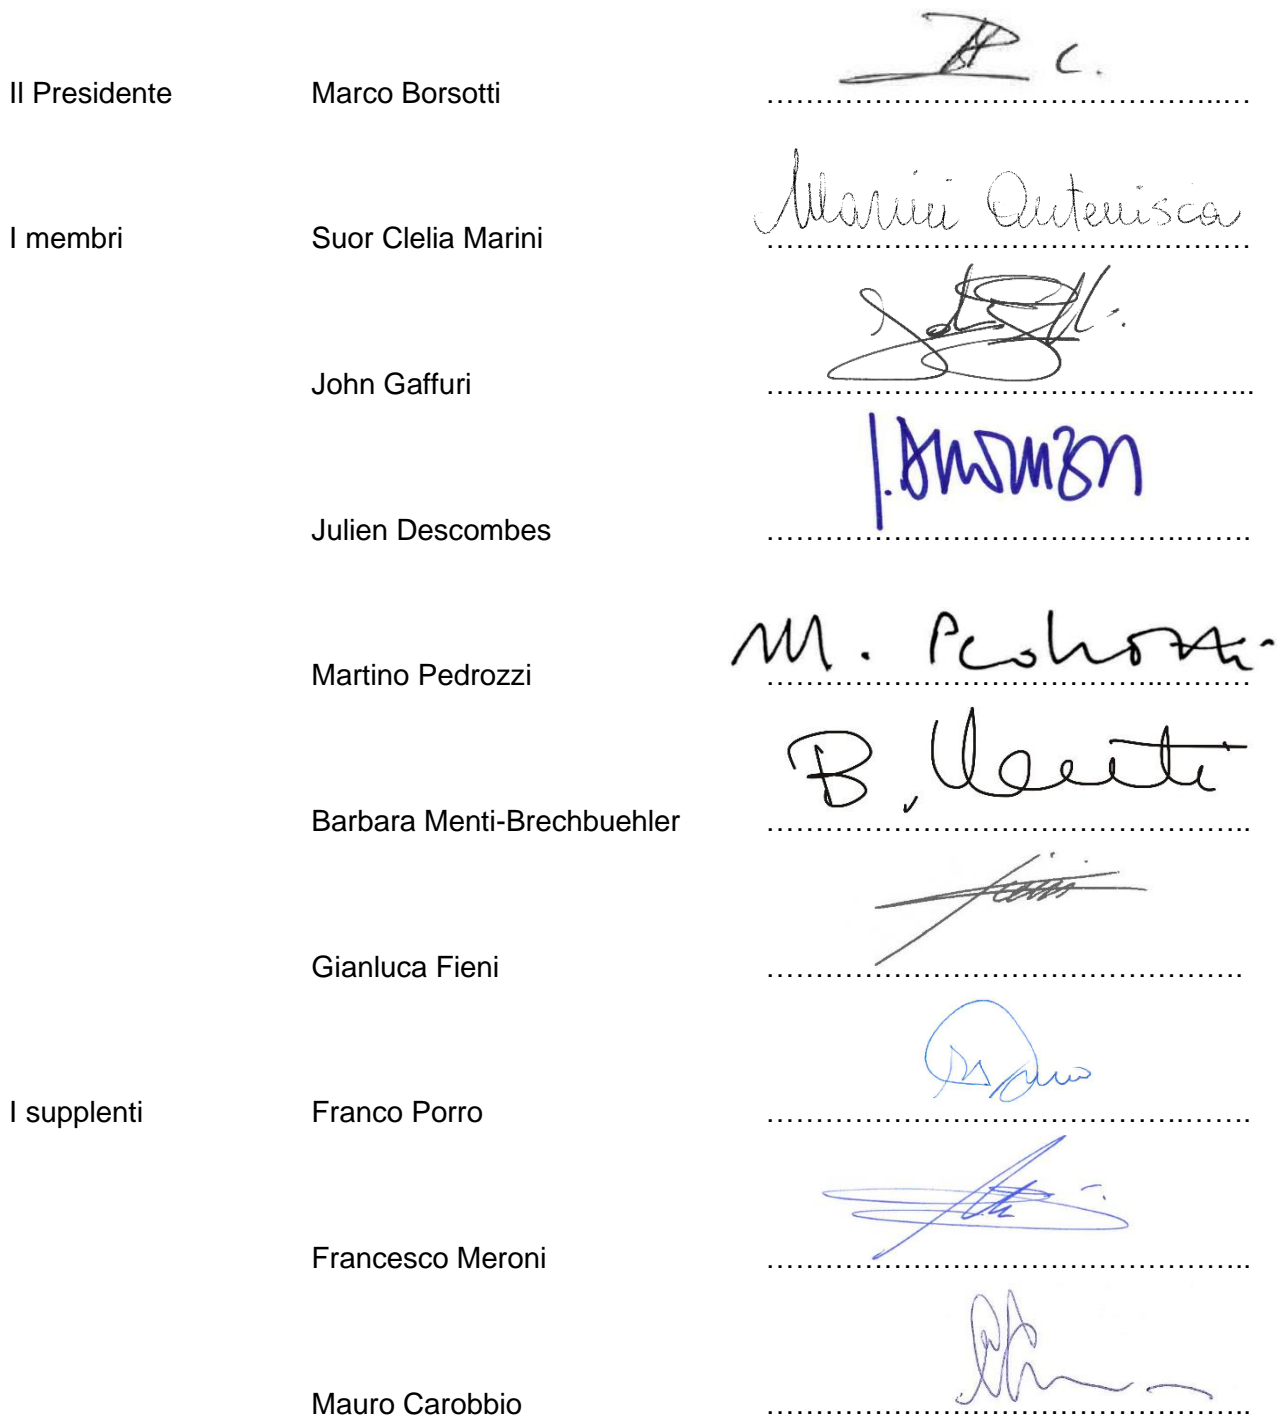 Il Presidente Marco Borsotti ……………………………………..…
C.
I membri Suor Clelia Marini ……………………………….…………
Marini Antenisca
John Gaffuri ……………………………………...…..
Julien Descombes …………………………………….…….
J.
Martino Pedrozzi …………………………………..………
M. Pedrozzi
Barbara Menti-Brechbuehler ………………………………………….
B. Menti
Gianluca Fieni ……………………………………….
I supplenti Franco Porro …………………………………….…….
Francesco Meroni ………………………………………….
Mauro Carobbio ………………………………………….